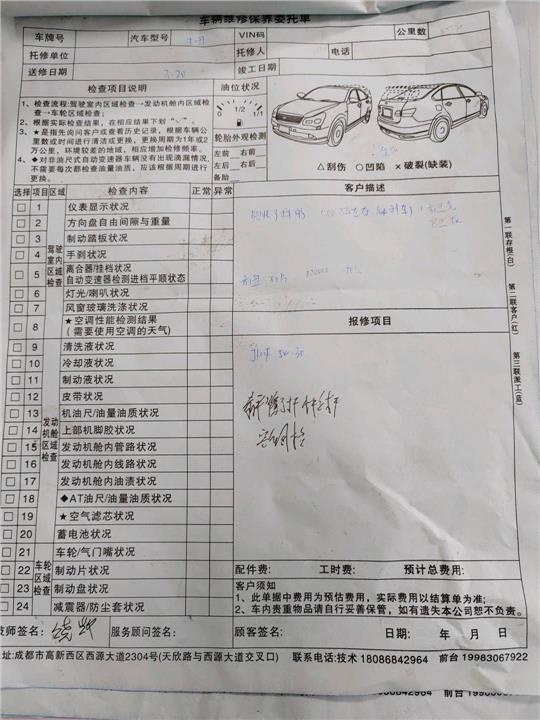 车辆维修保养委托单
车牌号 汽车型号 VIN码 公里数
托修单位 托修人 电话
送修日期 3.20 竣工日期
检查项目说明 油位状况
1、检查流程:驾驶室内区域检查→发动机舱内区域检查→车轮区域检查;
2、根据实际检查结果,在相应结果下划“✓”。
3、★是指先询问客户或查看历史记录,根据车辆公里数或时间进行清洁或更换,更换周期为1年或2万公里,环境较差的地域,相应增加检修频率。
4、◆对非油尺式自动变速器车辆没有出现滴漏情况,不需要每次都检查油量油质,应该根据周期进行更换。
0 1/2 1/1
轮胎外观检测
左前 右前
左后 右后
备胎
△刮伤 ○凹陷 ×破裂(缺装)
选择 项目 区域 检查内容 正常 异常
驾驶室内区域检查
1 仪表显示状况
2 方向盘自由间隙与重量
3 制动踏板状况
4 手刹状况
5 离合器/挂档状况
自动变速器检测进档平顺状态
6 灯光/喇叭状况
7 风窗玻璃洗涤状况
8 ★空调性能检测结果
(需要使用空调的天气)
发动机舱区域检查
9 清洗液状况
10 冷却液状况
11 制动液状况
12 皮带状况
13 机油尺/油量油质状况
14 上部机脚胶状况
15 发动机舱内管路状况
16 发动机舱内线路状况
17 发动机舱内油渍状况
18 ◆AT油尺/油量油质状况
19 ★空气滤芯状况
20 蓄电池状况
车轮区域检查
21 车轮/气门嘴状况
22 制动片状况
23 制动盘状况
24 减震器/防尘套状况
客户描述
报修项目
配件费: 工时费: 预计总费用:
客户须知
1、此单据中费用为预估费用,实际费用以结算单为准;
2、车内贵重物品请自行妥善保管,如有遗失本公司恕不负责。
第一联存根(白)
第二联客户(红)
第三联派工(蓝)
技师签名: 服务顾问签名: 顾客签名: 日期: 年 月 日
址:成都市高新西区西源大道2304号(天欣路与西源大道交叉口) 联系电话:技术 18086842964 前台 19983067922
6842964 前台 199830679